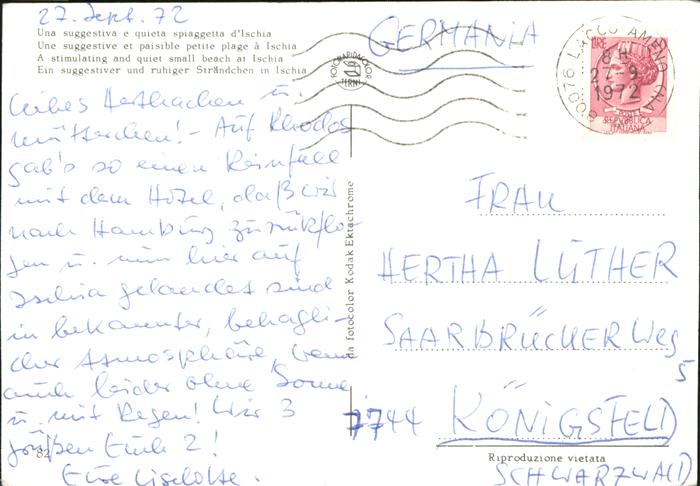 27. Sept. 72
Una suggestiva e quieta spiaggetta d'Ischia
Une suggestive et paisible petite plage à Ischia
A stimulating and quiet small beach at Ischia
Ein suggestiver und ruhiger Strändchen in Ischia
GERMANIA
FOTORAPIDACOLOR
TERNI
80076 LACCO AMENO (NA)
8 H
27-9
1972
LIRE
POSTE
REPVBBLICA
ITALIANA
Liebes Herthachen u.
Mütterchen! - Auf Rhodos
gab's so einen Reinfall
mit dem Hotel, daß wir
nach Hamburg zurückflo-
gen u. nun hier auf
Ischia gelandet sind
in bekannter, behagli-
cher Atmosphäre, wenn
auch leider ohne Sonne
u. mit Regen! Wir 3
grüßen Euch 2!
Eure Liselotte.
82
da fotocolor Kodak Ektachrome
FRAU
HERTHA LÜTHER
SAARBRÜCKER Weg
5
7744 KÖNIGSFELD
Riproduzione vietata
SCHWARZWALD